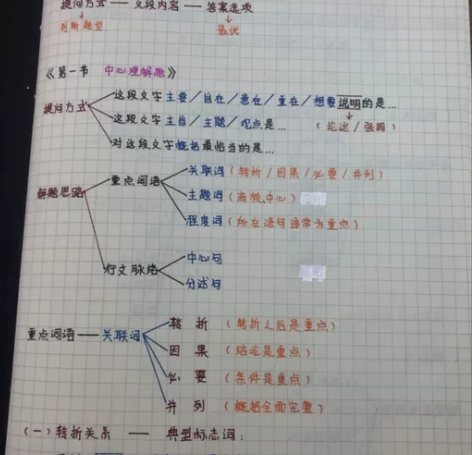 提问方式 —— 文段内容 —— 答案选项
↓ ↓
判断题型 最优
《第一节 中心理解题》
这段文字主要/旨在/意在/重在/想要说明的是…
↓
提问方式 这段文字主旨/主题/观点是… (论述/强调)
对这段文字概括最恰当的是…
关联词(转折/因果/必要/并列)
重点词语
解题思路 主题词(高频,中心)
程度词(所在语句通常为重点)
中心句
行文脉络
分述句
转折 (转折之后是重点)
重点词语——关联词
因果 (结论是重点)
必要 (条件是重点)
并列 (概括全面完整)
(一)转折关系 —— 典型标志词: